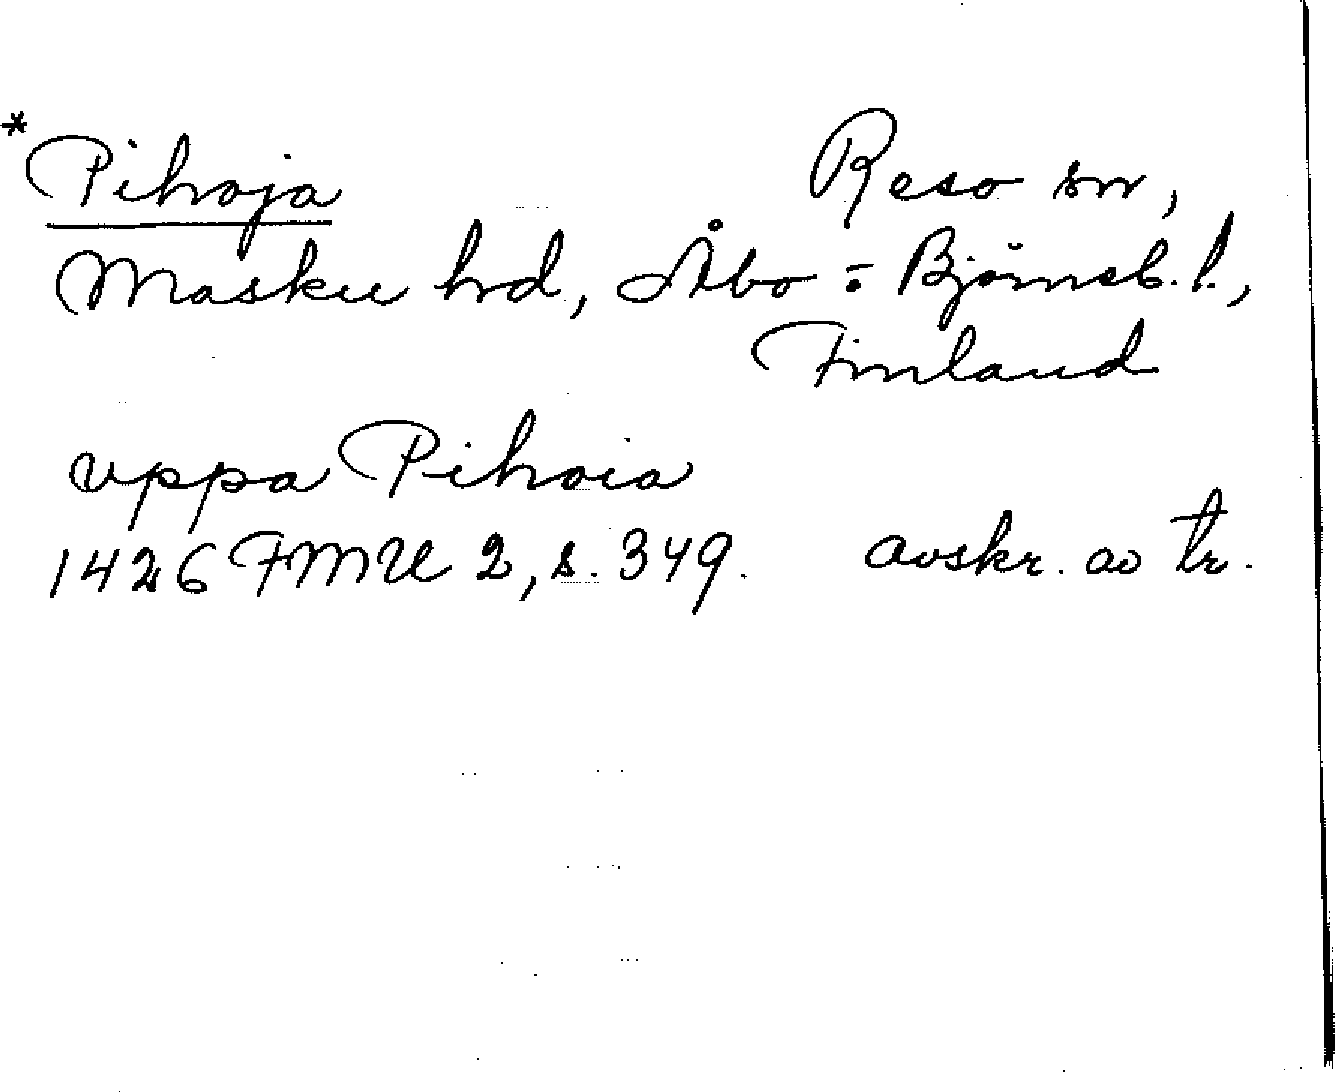 * Pihoja Reso sn,
Masku hd, Åbo-Björneb. l.,
Finland
vppa Pihoia
1426 FMU 2, s. 349. avskr. av tr.